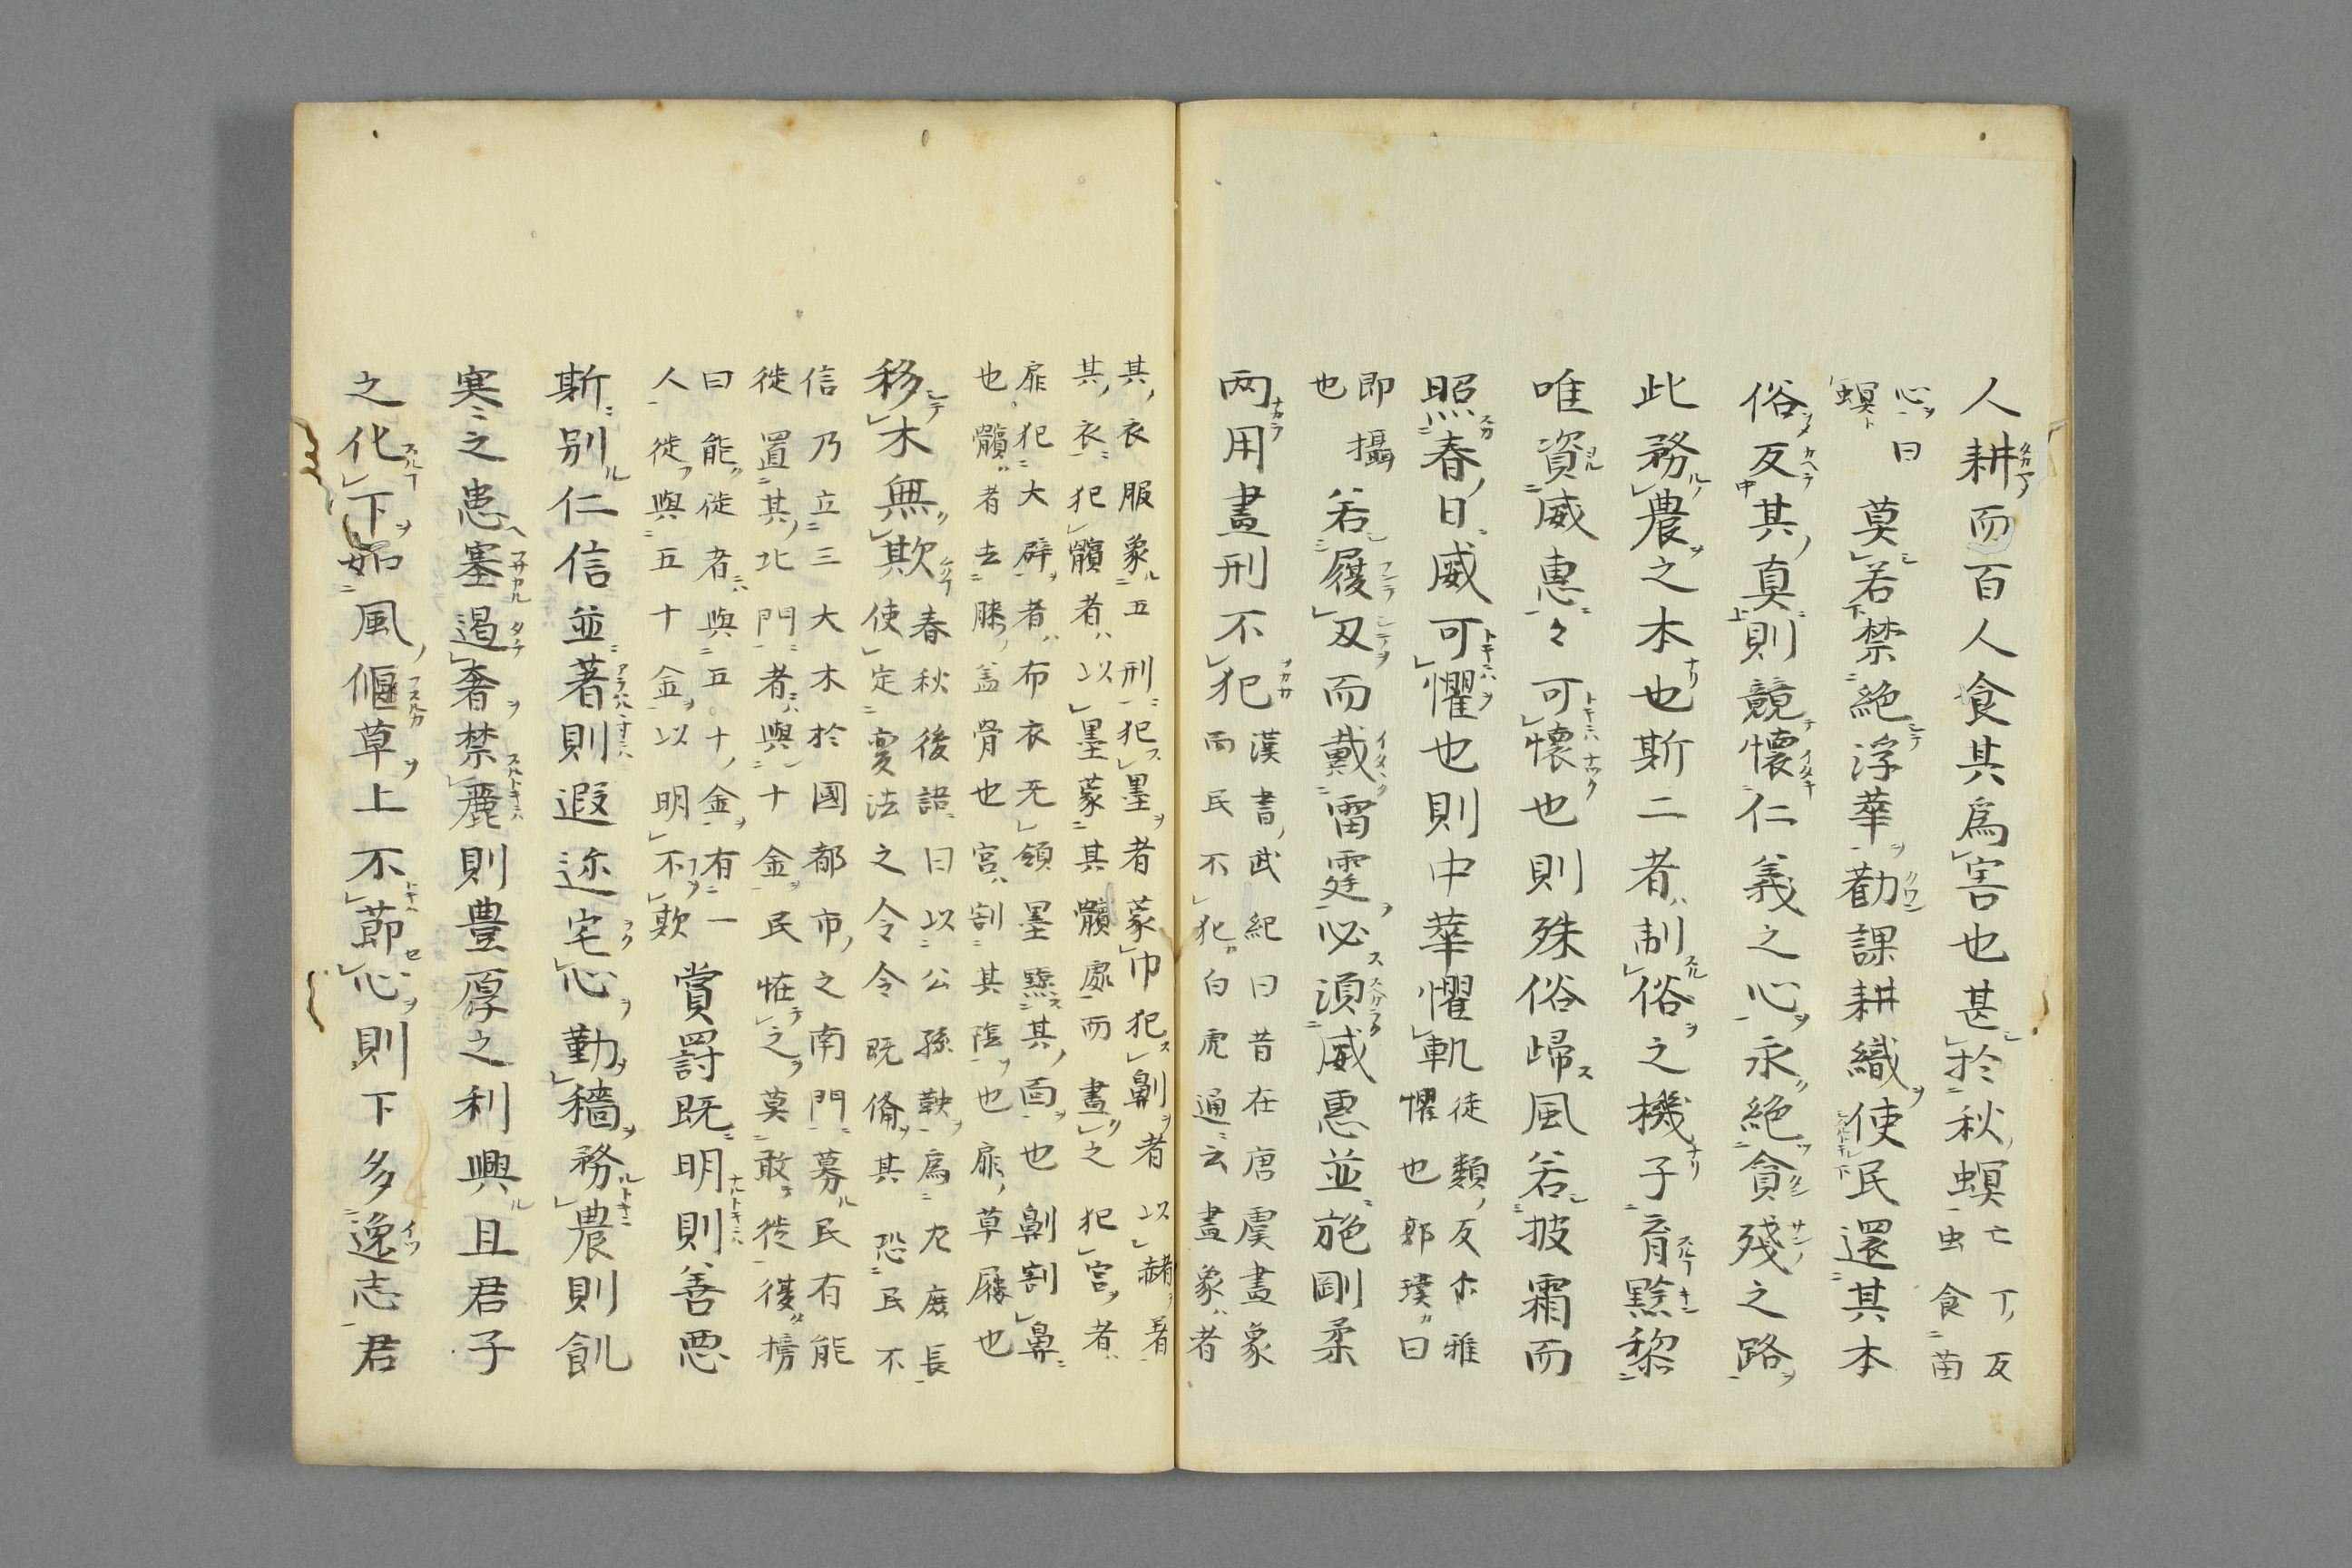 人耕而百人食其爲害也甚於秋螟亡丁反
虫食苗
心曰
螟
莫若禁絶浮華勸課耕織使民還其本
俗反其真則競懷仁義之心永絶貪殘之路
此務農之本也斯二者制俗之機子育黔黎
唯資威惠々可懷也則殊俗歸風若披霜而
照春日威可懼也則中華懼軌徒類反尒雅
懼也郭璞曰
即攝
也
若履刄而戴雷霆必湏威惠並施剛柔
两用畫刑不犯漢書武紀曰昔在唐虞畫象
而民不犯白虎通云畫象者
其衣服象五刑犯墨者蒙巾犯劓者以赭著
其衣犯髕者以墨蒙其髕處而畫之犯宮者
屝犯大辟者布衣无領墨黥其面也劓割鼻
也髕者去膝盖骨也宮割其陰也屝草屨也
移木無欺春秋後語曰以公孫鞅爲尤庶長
使定變法之令令既脩其恐民不
信乃立三大木於國都市之南門募民有能
徙置其北門者與十金民恠之莫敢徙後榜
曰能徙者與五十金有一
人徙與五十金以明不欺
賞罸既明則善悪
斯別仁信並著則遐迩宅心勤穡務農則飢
寒之患塞遏奢禁麗則豊厚之利興且君子
之化下如風偃草上不節心則下多逸志君